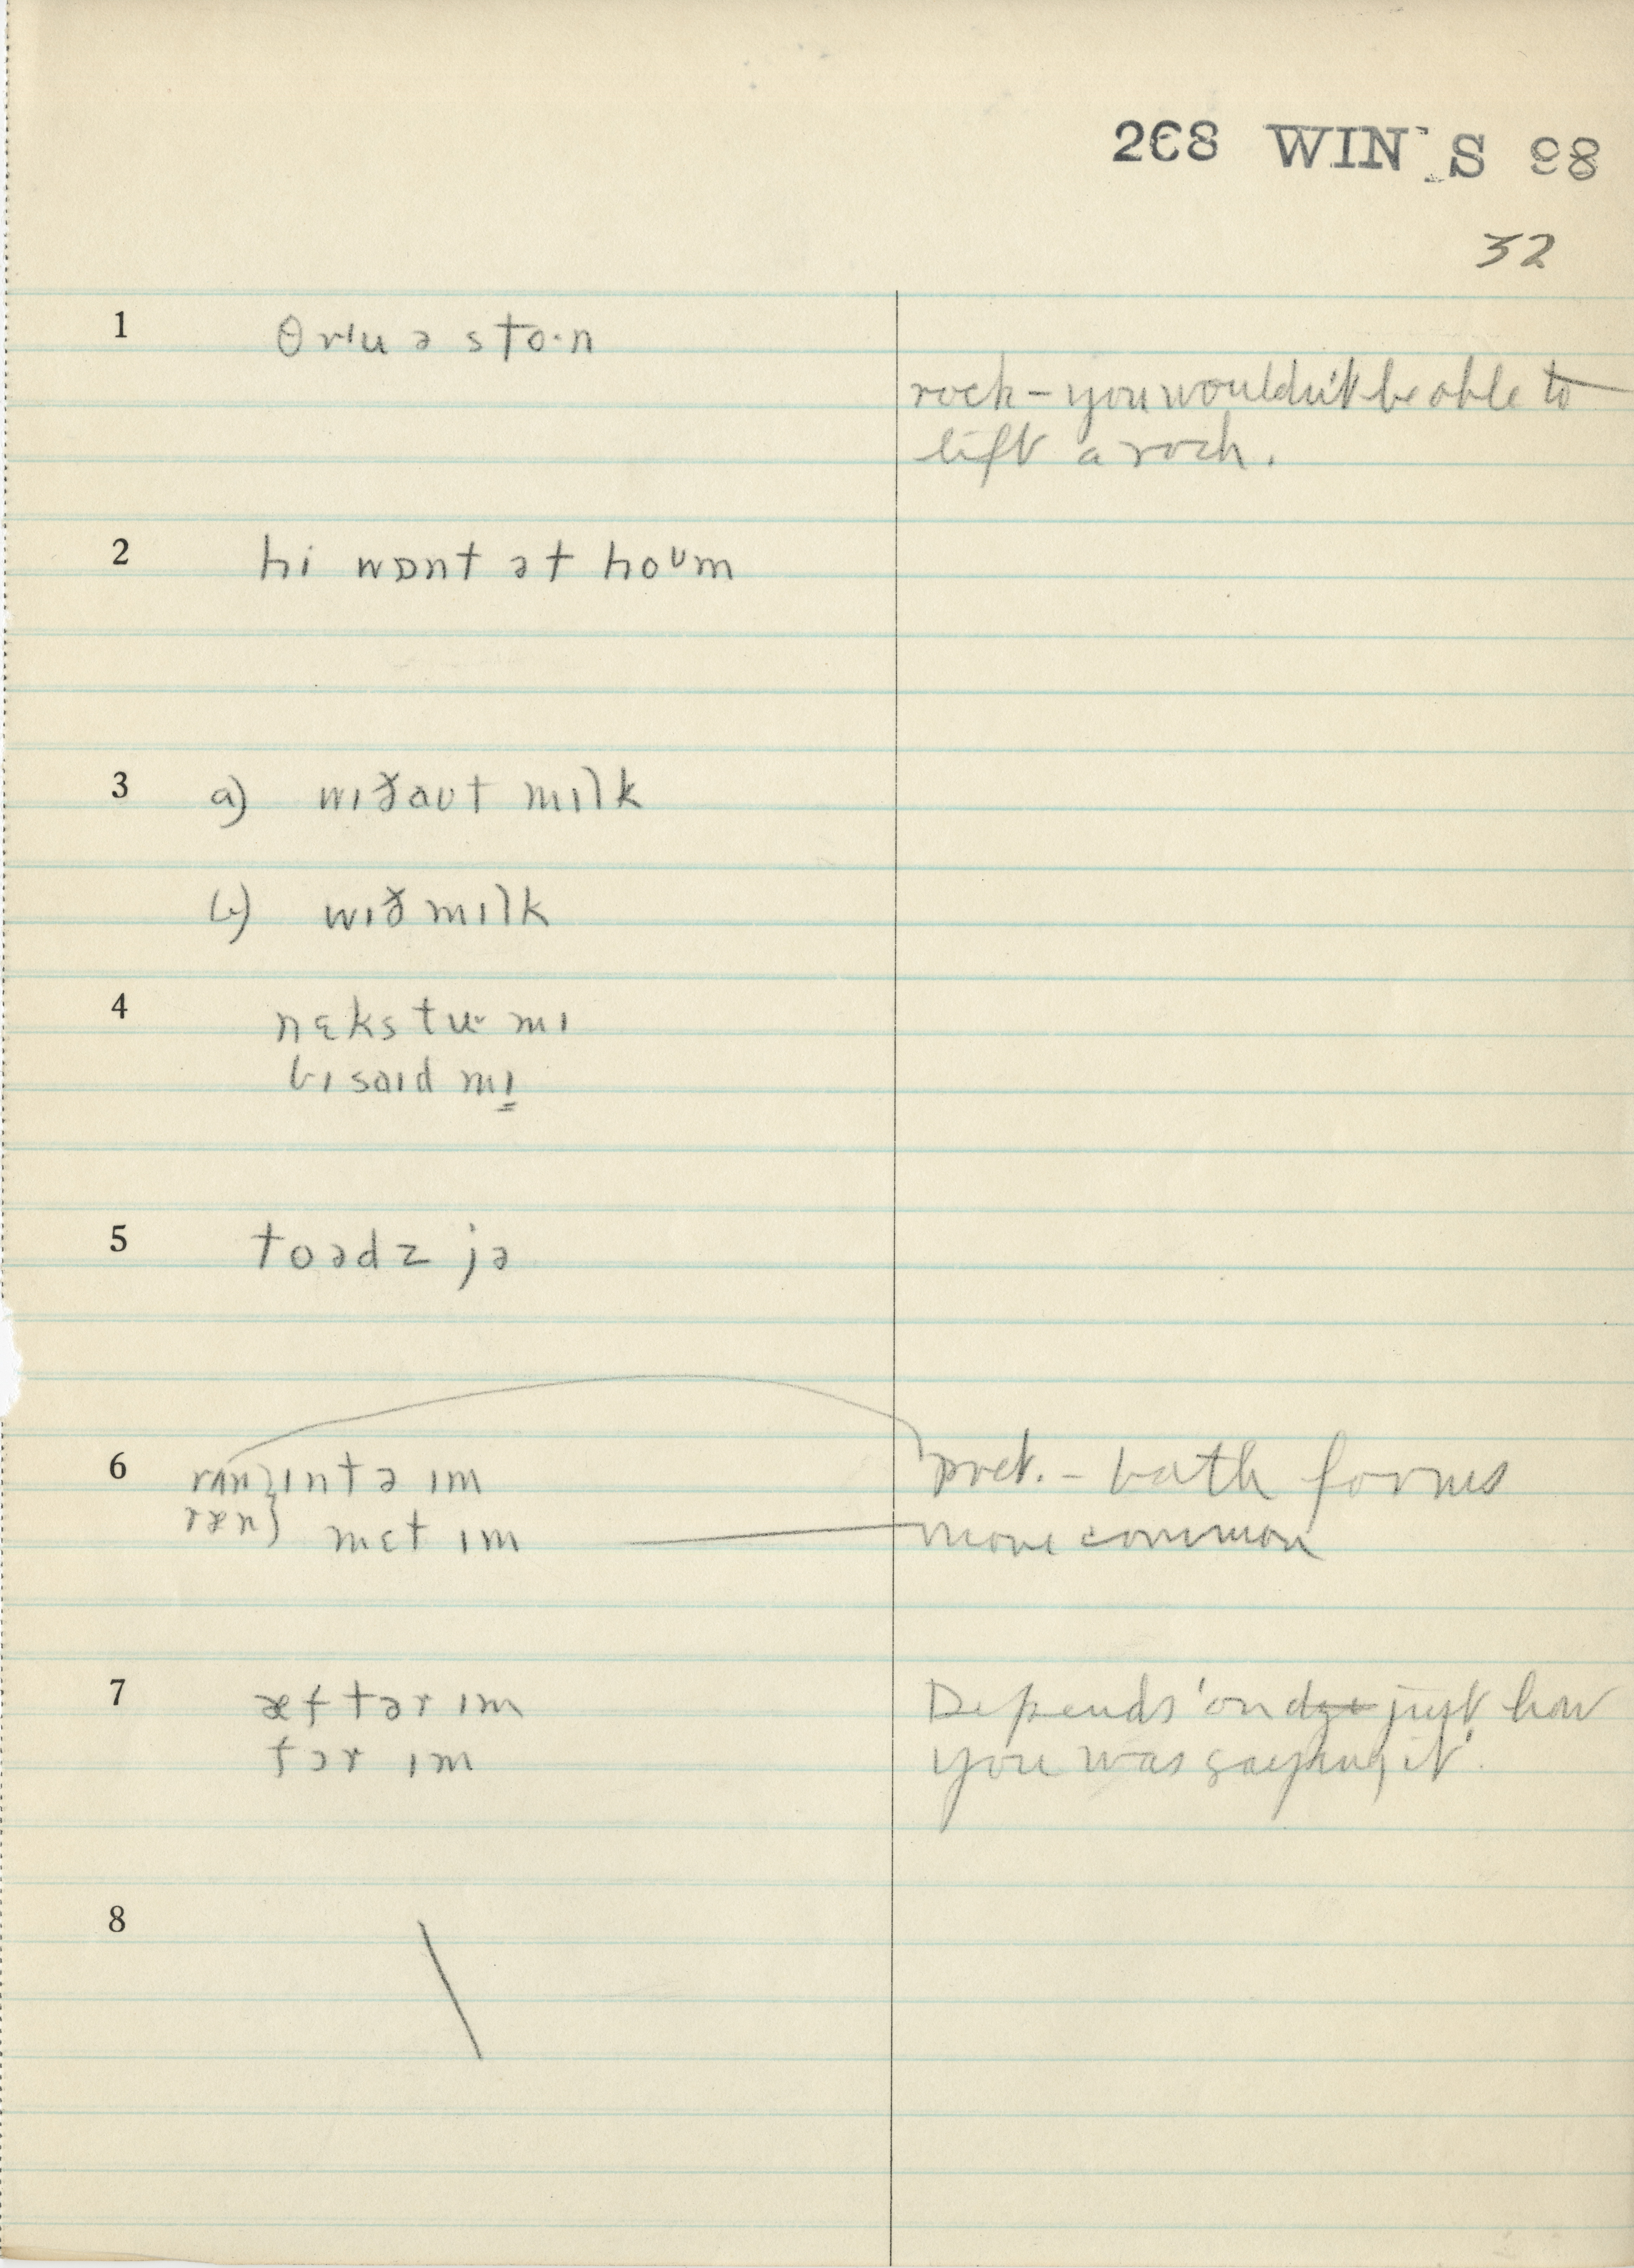 268 WIN'S 98
32
1 θrɪu ə sto·n
rock – you wouldn't be able to
lift a rock.
2 hi wɒnt ət hoᴜm
3 a) wɪðaʊt mɪlk
b) wɪð mɪlk
4 nɛks tu· mɪ
bɪsaɪd mɪ
5 toədz jə
6 rʌn } ɪntə ɪm
pret. – both forms
ræn } mɛt ɪm
more common
7 æftər ɪm
Depends 'on just how
fər ɪm
you was saying it'.
8